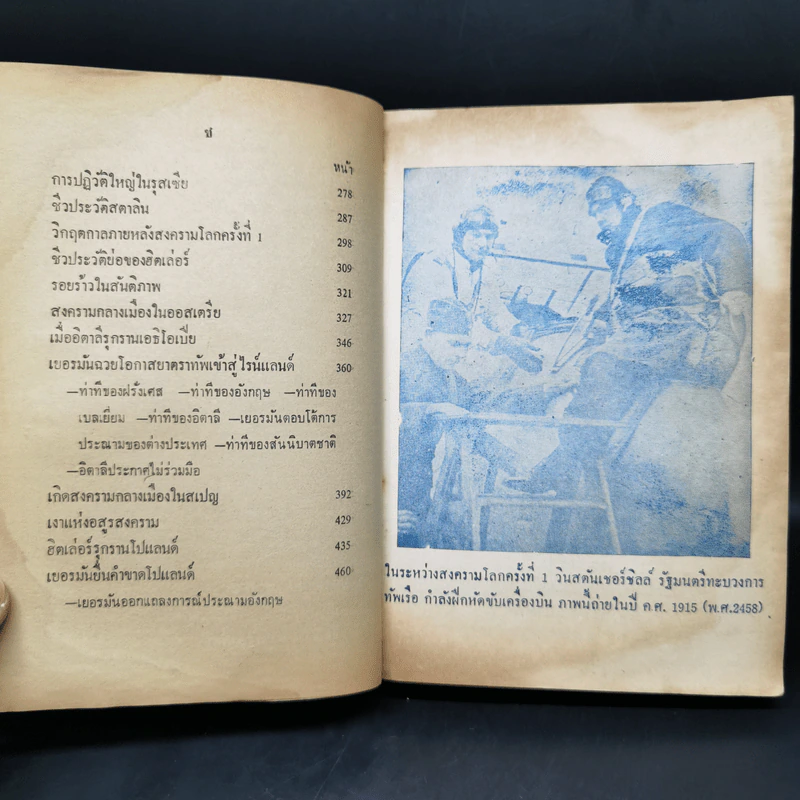 ช
หน้า
การปฏิวัติใหญ่ในรุสเซีย 278
ชีวประวัติสตาลิน 287
วิกฤตกาลภายหลังสงครามโลกครั้งที่ 1 298
ชีวประวัติย่อของฮิตเล่อร์ 309
รอยร้าวในสันติภาพ 321
สงครามกลางเมืองในออสเตรีย 327
เมื่ออิตาลีรุกรานเอธิโอเปีย 346
เยอรมันฉวยโอกาสยาตราทัพเข้าสู่ไรน์แลนด์ 360
—ท่าทีของฝรั่งเศส —ท่าทีของอังกฤษ —ท่าทีของ
เบลเยี่ยม —ท่าทีของอิตาลี —เยอรมันตอบโต้การ
ประณามของต่างประเทศ —ท่าทีของสันนิบาตชาติ
—อิตาลีประกาศไม่ร่วมมือ
เกิดสงครามกลางเมืองในสเปญ 392
เงาแห่งอสูรสงคราม 429
ฮิตเล่อร์รุกรานโปแลนด์ 435
เยอรมันยื่นคำขาดโปแลนด์ 460
—เยอรมันออกแถลงการณ์ประณามอังกฤษ
ในระหว่างสงครามโลกครั้งที่ 1 วินสตันเชอร์ชิลล์ รัฐมนตรีทะบวงการ
ทัพเรือ กำลังฝึกหัดขับเครื่องบิน ภาพนี้ถ่ายในปี ค.ศ. 1915 (พ.ศ.2458)